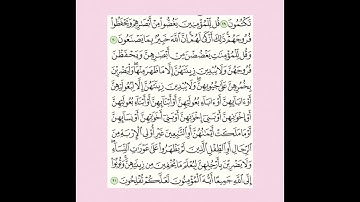 تَكْتُمُونَ ٢٩ قُل لِّلْمُؤْمِنِينَ يَغُضُّوا۟ مِنْ أَبْصَٰرِهِمْ وَيَحْفَظُوا۟
فُرُوجَهُمْ ۚ ذَٰلِكَ أَزْكَىٰ لَهُمْ ۗ إِنَّ ٱللَّهَ خَبِيرٌۢ بِمَا يَصْنَعُونَ ٣٠
وَقُل لِّلْمُؤْمِنَٰتِ يَغْضُضْنَ مِنْ أَبْصَٰرِهِنَّ وَيَحْفَظْنَ
فُرُوجَهُنَّ وَلَا يُبْدِينَ زِينَتَهُنَّ إِلَّا مَا ظَهَرَ مِنْهَا ۖ وَلْيَضْرِبْنَ
بِخُمُرِهِنَّ عَلَىٰ جُيُوبِهِنَّ ۖ وَلَا يُبْدِينَ زِينَتَهُنَّ إِلَّا لِبُعُولَتِهِنَّ
أَوْ ءَابَآئِهِنَّ أَوْ ءَابَآءِ بُعُولَتِهِنَّ أَوْ أَبْنَآئِهِنَّ أَوْ أَبْنَآءِ بُعُولَتِهِنَّ
أَوْ إِخْوَٰنِهِنَّ أَوْ بَنِىٓ إِخْوَٰنِهِنَّ أَوْ بَنِىٓ أَخَوَٰتِهِنَّ أَوْ نِسَآئِهِنَّ
أَوْ مَا مَلَكَتْ أَيْمَٰنُهُنَّ أَوِ ٱلتَّٰبِعِينَ غَيْرِ أُو۟لِى ٱلْإِرْبَةِ مِنَ
ٱلرِّجَالِ أَوِ ٱلطِّفْلِ ٱلَّذِينَ لَمْ يَظْهَرُوا۟ عَلَىٰ عَوْرَٰتِ ٱلنِّسَآءِ ۖ
وَلَا يَضْرِبْنَ بِأَرْجُلِهِنَّ لِيُعْلَمَ مَا يُخْفِينَ مِن زِينَتِهِنَّ ۚ وَتُوبُوٓا۟
إِلَى ٱللَّهِ جَمِيعًا أَيُّهَ ٱلْمُؤْمِنُونَ لَعَلَّكُمْ تُفْلِحُونَ ٣١